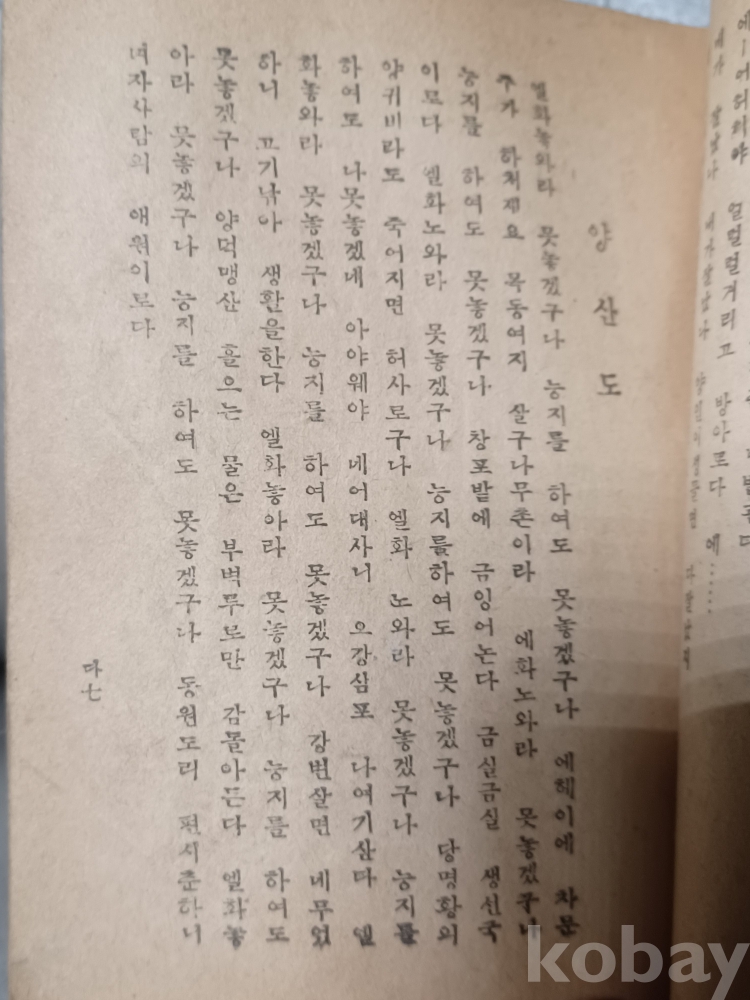 에ー어허하야 얼럴럴거리고 방아로다 에……
양산도
엘화놓와라 못놓겠구나 능지를 하여도 못놓겠구나 에헤이에 차문
주가 하처재요 목동여지 살구나무촌이라 에화노와라 못놓겠구나
능지를 하여도 못놓겠구나 창포밭에 금잉어논다 금실금실 생선국
이로다 엘화노와라 못놓겠구나 능지를하여도 못놓겠구나 당명황의
양귀비라도 죽어지면 허사로구나 엘화 노와라 못놓겠구나 능지를
하여도 나못놓겠네 아야웨야 네어대사니 으강삼포 나여기산다 엘
화놓와라 못놓겠구나 능지를 하여도 못놓겠구나 강변살면 네무었
하니 고기낚아 생활을한다 엘화놓아라 못놓겠구나 능지를 하여도
못놓겠구나 양덕맹산 흘으는 물은 부벽루로만 감몰아든다 엘화놓
아라 못놓겠구나 능지를 하여도 못놓겠구나 동원도리 편시춘하니
여자사람의 애원이로다
다七
kobay